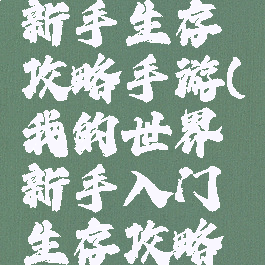 新手生存
攻略手游(
我的世界
新手入门
生存攻略